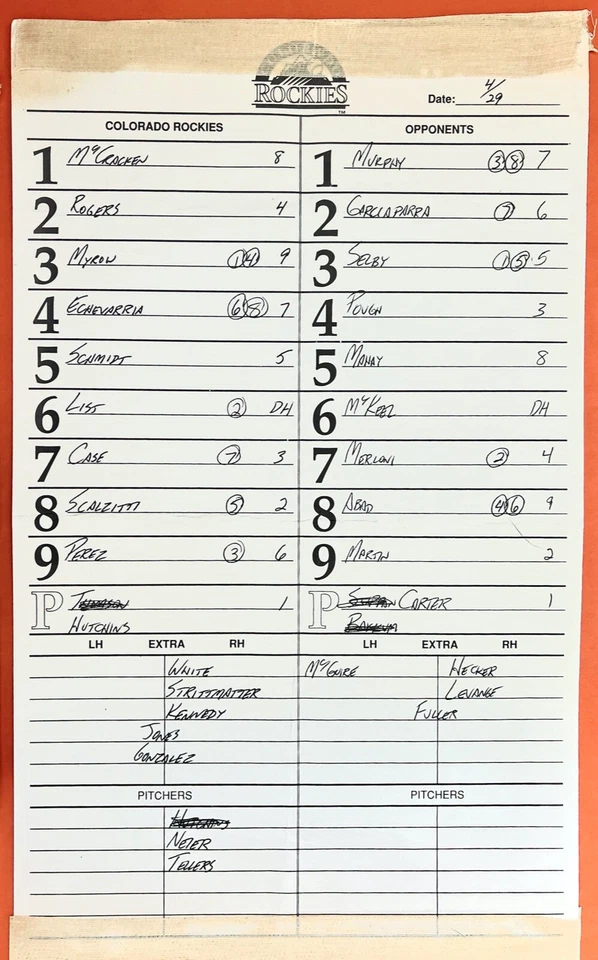 ROCKIES
TM
Date: 4/29
COLORADO ROCKIES OPPONENTS
1 McCracken 8 1 Murphy 3 8 7
2 Rogers 4 2 Garciaparra 7 6
3 Myrow 1 4 9 3 Selby 1 5 5
4 Echevarria 6 8 7 4 Pough 3
5 Schmidt 5 5 Manay 8
6 List 2 DH 6 McKeel DH
7 Case 7 3 7 Merloni 2 4
8 Scalzitti 5 2 8 Abad 4 6 9
9 Perez 3 6 9 Martin 2
P 1 P Carter 1
Hutchins
LH EXTRA RH LH EXTRA RH
White McGuire Hecker
Strittmatter Levange
Kennedy Fuller
Jones
Gonzalez
PITCHERS PITCHERS
Hutchins
Neier
Tellers